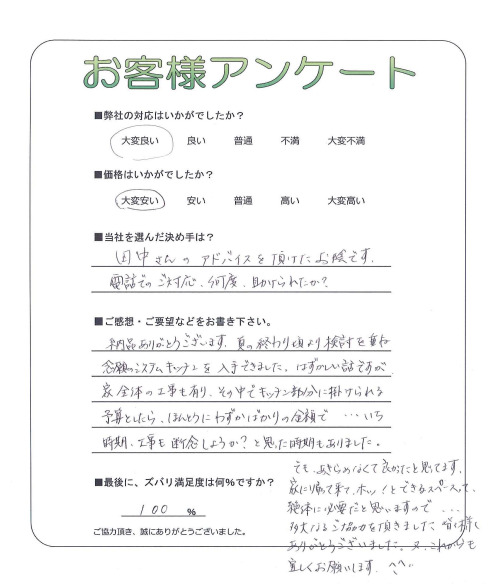 お客様アンケート
■弊社の対応はいかがでしたか？
大変良い　良い　普通　不満　大変不満
■価格はいかがでしたか？
大変安い　安い　普通　高い　大変高い
■当社を選んだ決め手は？
田中さんのアドバイスを頂けたお陰です。
電話でのご対応、何度、助けられたか？
■ご感想・ご要望などをお書き下さい。
納品ありがとうございます。夏の終わり頃より検討を重ね
念願のシステムキッチンを入手できました。はずかしい話ですが
家全体の工事も有り、その中でキッチン部分に掛けられる
予算としたら、ほんとうにわずかばかりの金額で…いち
時期、工事も断念しようか？と思った時期もありました。
でも、あきらめなくて良かったと思ってます。
家に帰って来て、ホッ！とできるスペースって、
絶体に必要だと思いますので…
多大なるご協力を頂きました皆様
ありがとうございました。又、これからも
宜しくお願いします。^^
■最後に、ズバリ満足度は何％ですか？
100 %
ご協力頂き、誠にありがとうございました。